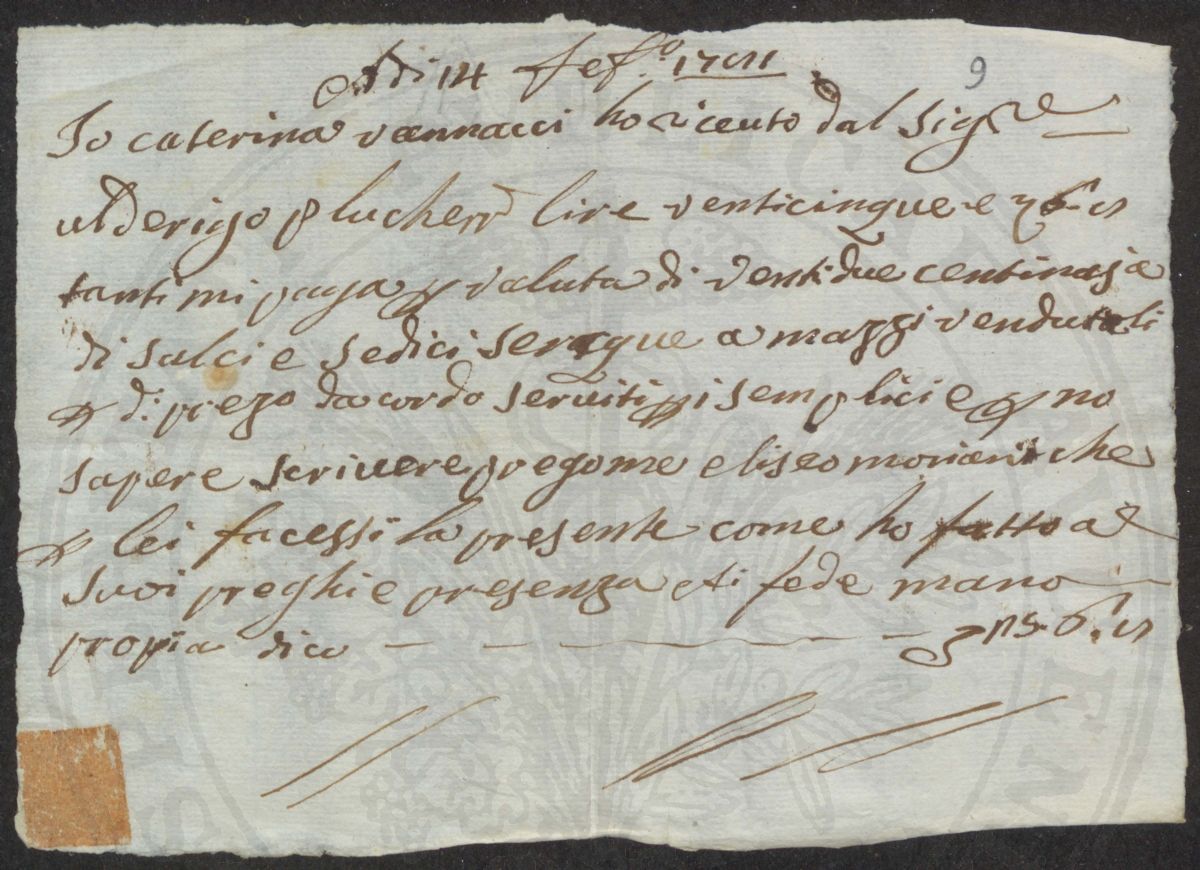 Adi 14 fef.o 9
Io caterina vannacci ho riceuto dal Sigre
ulderigo lire venticinque e
tanti mi paga valuta di ventidue centinaja
di salci e sedici serque a mazzi vendutoli
di prezo dacordo seruiti i semplici e no
sapere scriuere pregome eliseo che
lei facessi la presente come ho fatto a
suoi preghi e presenza di fede mano
propia dico